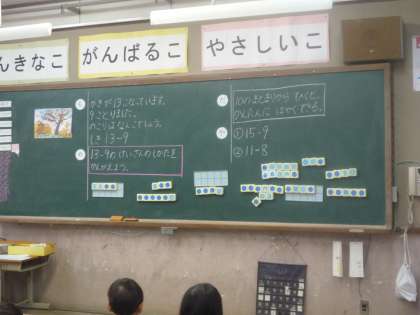 んきなこ
がんばるこ
やさしいこ
かきが13こなっています。
9ことりました。
のこりはなんこでしょう。
しき 13-9
13-9の けいさんのしかたを
かんがえよう。
10のまとまりから ひくと、
かんたんに はやくできる。
①15-9
②11-8